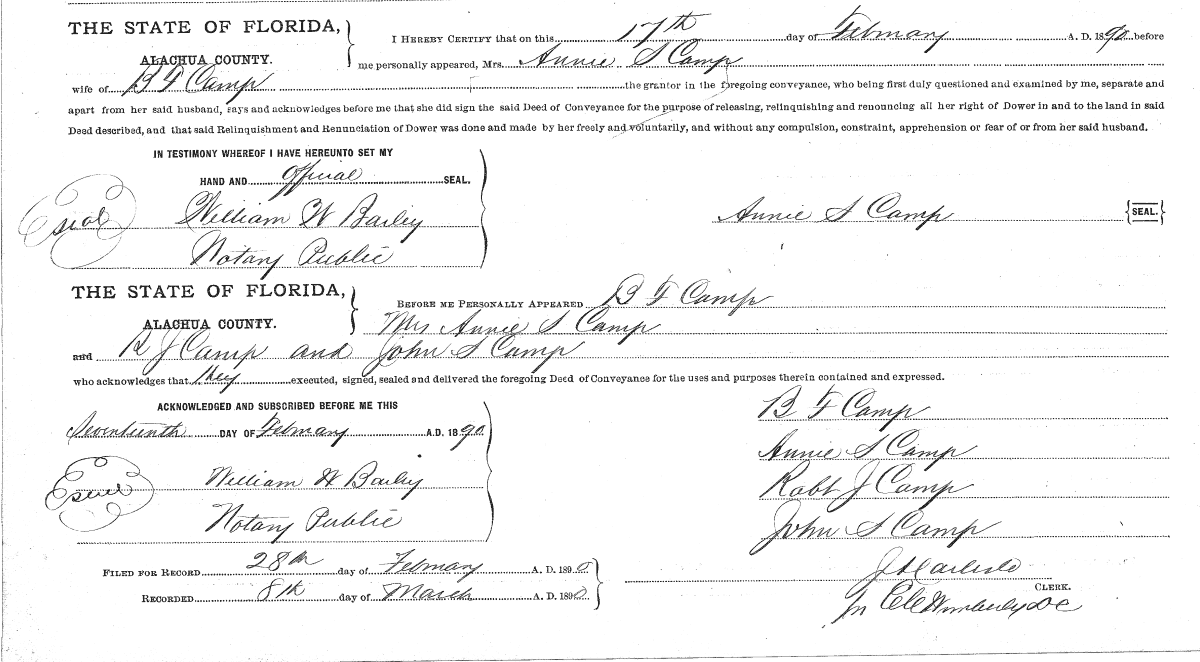 THE STATE OF FLORIDA,
ALACHUA COUNTY.
I HEREBY CERTIFY that on this 17th day of February A. D. 1890 before
me personally appeared, Mrs. Annie S Camp
wife of B F Camp the grantor in the foregoing conveyance, who being first duly questioned and examined by me, separate and
apart from her said husband, says and acknowledges before me that she did sign the said Deed of Conveyance for the purpose of releasing, relinquishing and renouncing all her right of Dower in and to the land in said
Deed described, and that said Relinquishment and Renunciation of Dower was done and made by her freely and voluntarily, and without any compulsion, constraint, apprehension or fear of or from her said husband.
IN TESTIMONY WHEREOF I HAVE HEREUNTO SET MY
HAND AND official SEAL.
seal William W Bailey
Notary Public
Annie S Camp SEAL.
THE STATE OF FLORIDA,
ALACHUA COUNTY.
BEFORE ME PERSONALLY APPEARED B F Camp
Mrs Annie S Camp
and R J Camp and John S Camp
who acknowledges that they executed, signed, sealed and delivered the foregoing Deed of Conveyance for the uses and purposes therein contained and expressed.
ACKNOWLEDGED AND SUBSCRIBED BEFORE ME THIS
Seventeenth DAY OF February A.D. 1890
seal William W Bailey
Notary Public
B F Camp
Annie S Camp
Robt J Camp
John S Camp
FILED FOR RECORD 28th day of February A. D. 1890
RECORDED 8th day of March A. D. 1890
J Carlisle
CLERK.
Wimberly DC